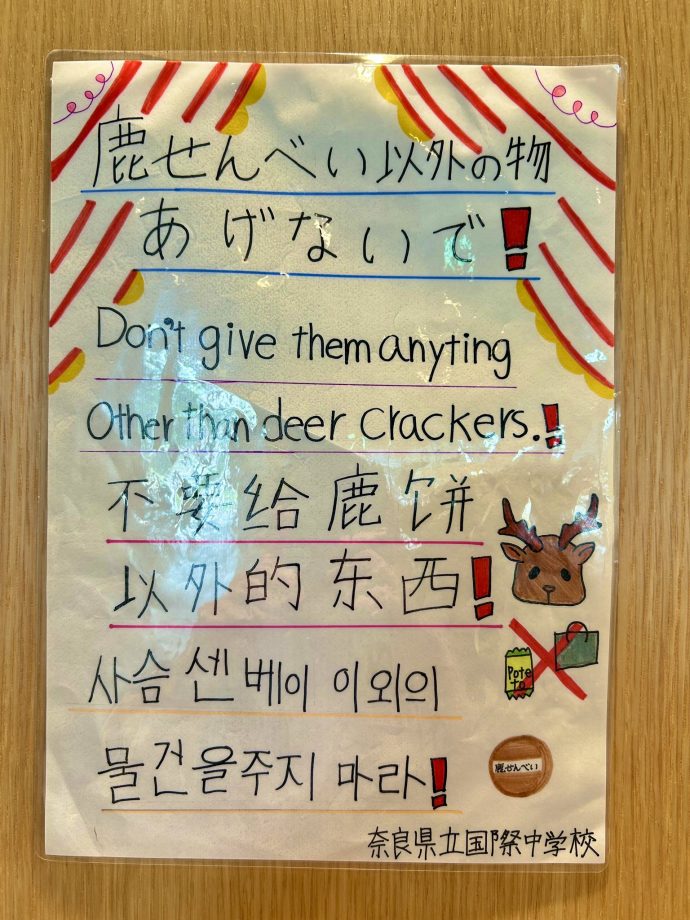 鹿せんべい以外の物
あげないで！
Don't give them anyting
Other than deer crackers.!
不要给鹿饼
以外的东西！
사슴 센베이 이외의
물건을주지 마라!
Pote
to
鹿せんべい
奈良県立国際中学校